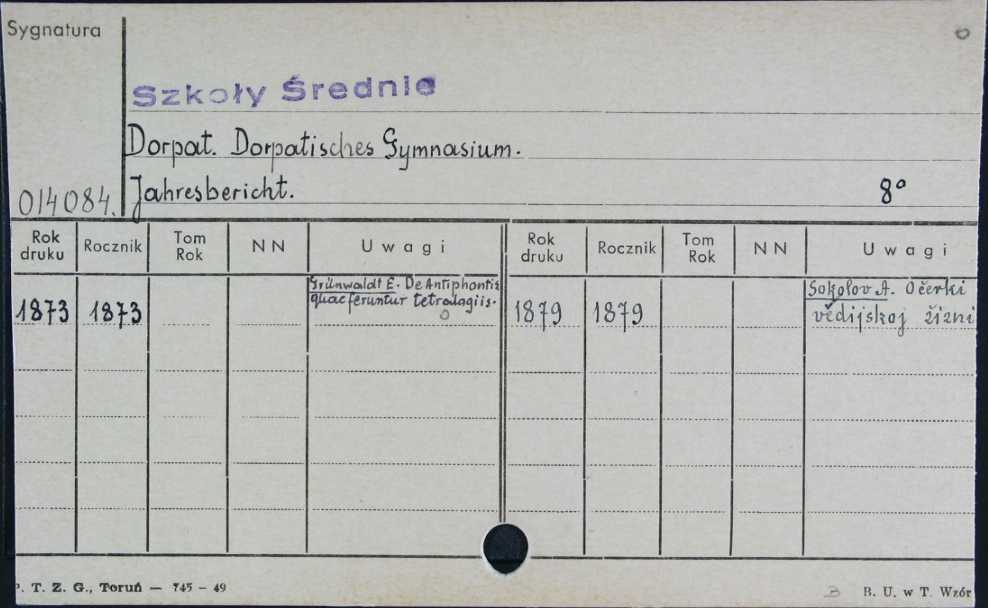 Sygnatura
Szkoły Średnie
Dorpat. Dorpatisches Gymnasium.
014084. Jahresbericht. 8°
Rok druku Rocznik Tom Rok NN Uwagi Rok druku Rocznik Tom Rok NN Uwagi
1873 1873 Grünwaldt E. De Antiphontis quae feruntur tetralogiis. 1879 1879 Sokolov A. Očerki vědijskoj žizni
P. T. Z. G., Toruń — 745 – 49 B. U. w T. Wzór